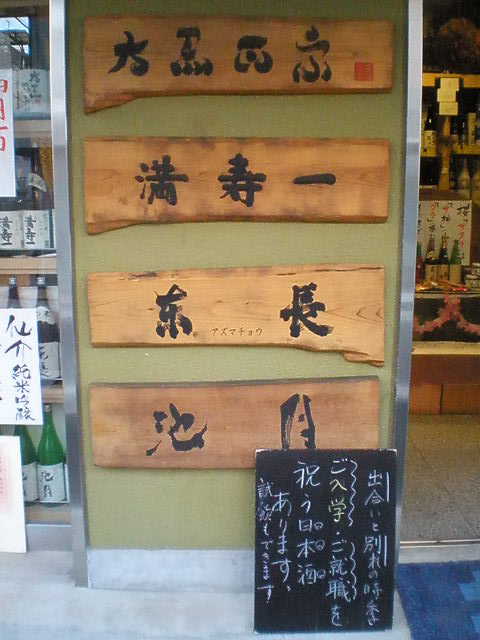 大黒正宗
満寿一
东長
アズマチョウ
池月
出合いと別れの時季
ご入学・ご就職を
祝う日本酒
あります。
試飲もできます
仙介 純米吟醸
満寿一